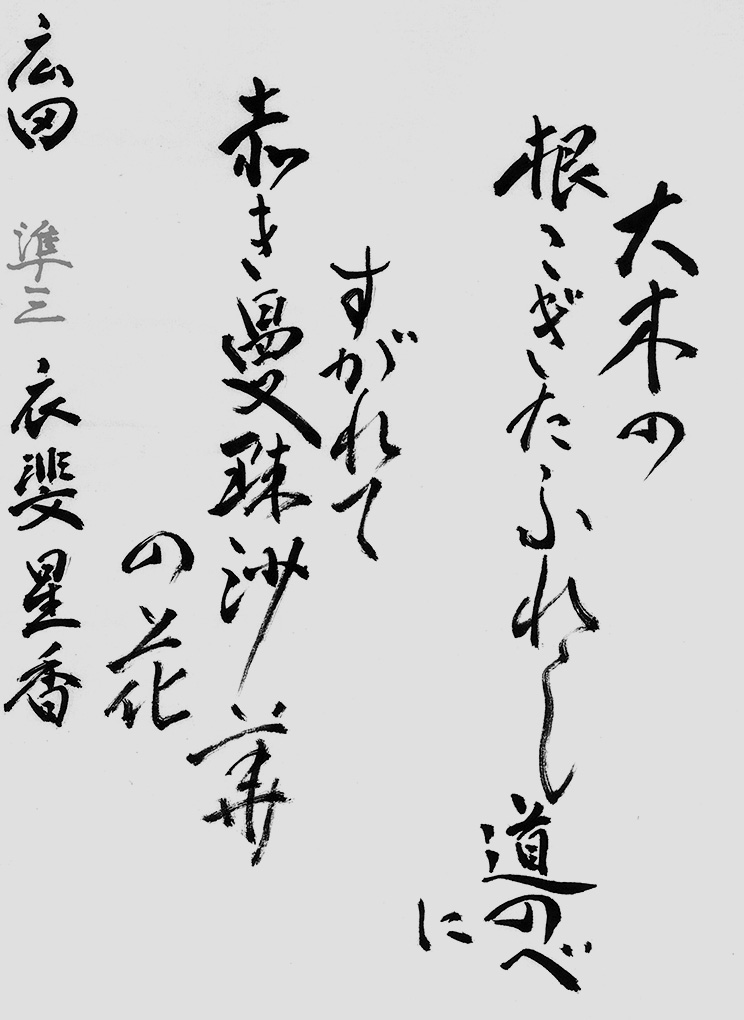 大木の
根こぎたふれし道のべ
に
すがれて
赤き曼珠沙華
の花
広田 準三 衣斐星香